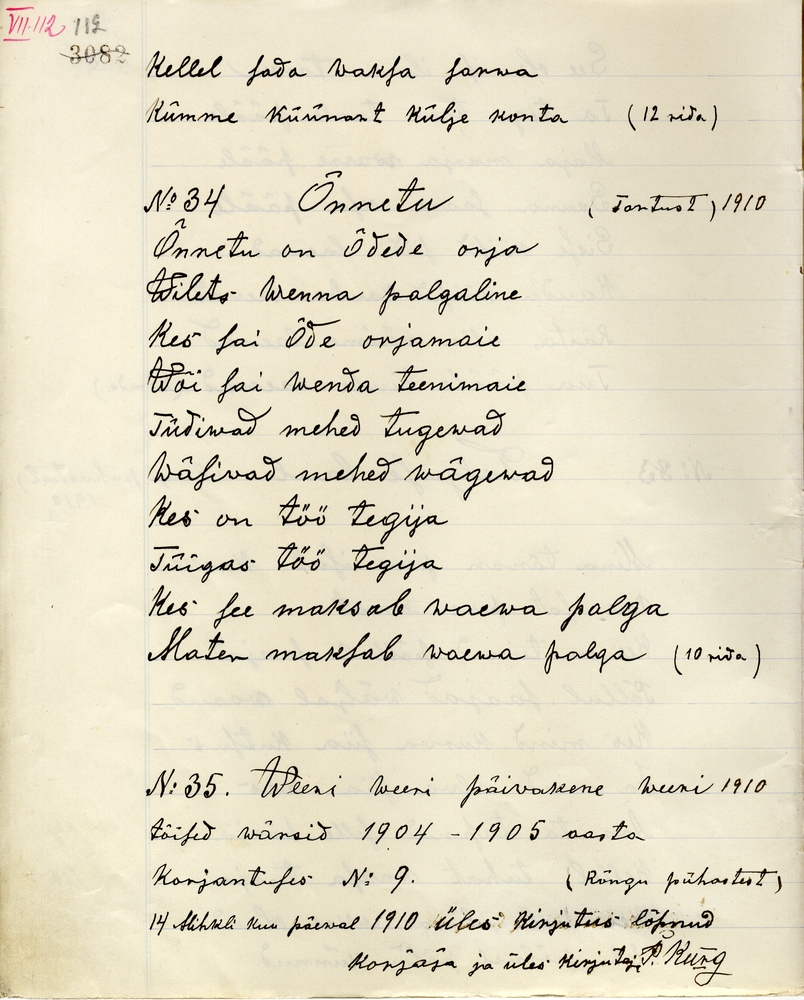 VII 112 112
3082
Kellel sada waksa sarwa
Kümme küünart külje konta (12 rida)
No 34 Õnnetu (Tartust) 1910
Õnnetu on Õdede orja
Wilets Wenna palgaline
Kes sai Õde orjamaie
Wõi sai Wenda teenimaie
Tüdiwad mehed tugewad
Wäsivad mehed wägewad
Kes on töö tegija
Tüigas töö tegija
Kes see maksab waewa palga
Mater maksab waewa palga (10 rida)
N: 35. Weeni weeri päivakene weeri 1910
tõised wärsid 1904 - 1905 aasta
Korjantuses N: 9. (Rõngu pühastest)
14 Mihkli kuu päewal 1910 üles kirjutus lõpnud
korjaja ja üles kirjutaj. P. Kurg